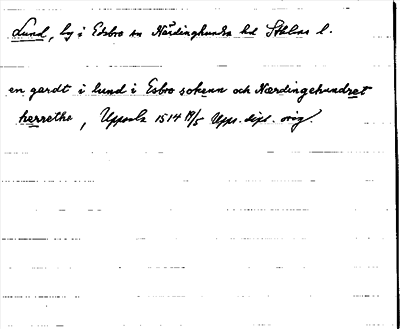 Lund, by i Edsbro sn Närdinghundra hd Sthlms l.
en gardt i lund i Esbro sokenn och Nærdingehundret
herrethe, Uppsala 1514 19/5 Upps. dipl. orig.